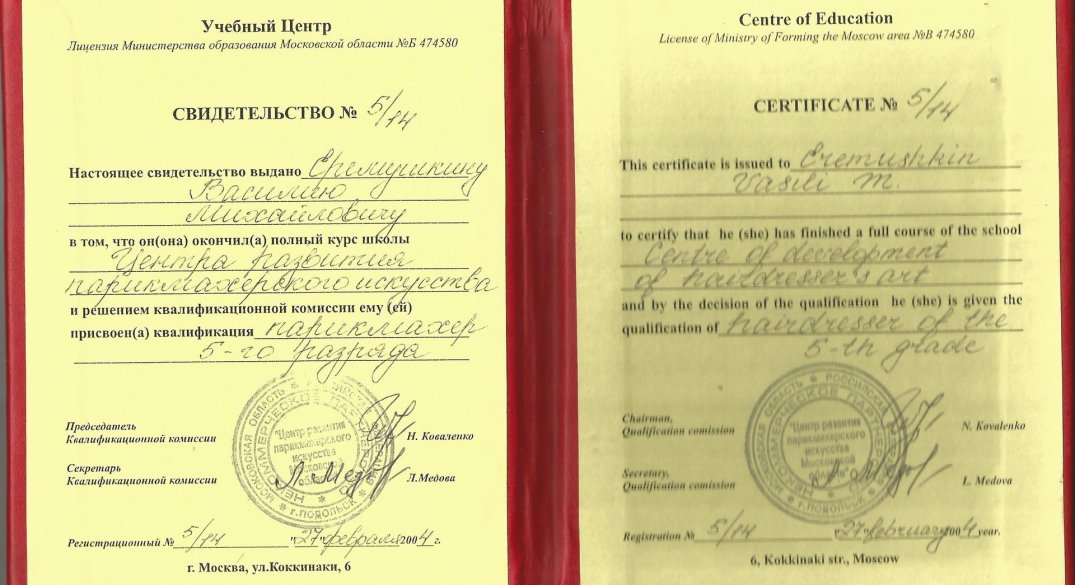 Учебный Центр
Лицензия Министерства образования Московской области №Б 474580
СВИДЕТЕЛЬСТВО № 5/14
Настоящее свидетельство выдано Еремушкину
Василию
Михайловичу
в том, что он(она) окончил(а) полный курс школы
Центра развития
парикмахерского искусства
и решением квалификационной комиссии ему (ей)
присвоен(а) квалификация парикмахер
5-го разряда
Председатель
Квалификационной комиссии
Н. Коваленко
Секретарь
Квалификационной комиссии
Л.Медова
МОСКОВСКАЯ ОБЛАСТЬ
НЕКОММЕРЧЕСКОЕ ПАРТНЕРСТВО
"Центр развития
парикмахерского
искусства
Московской
области"
г. ПОДОЛЬСК
Регистрационный № 5/14 "27" февраля 2004 г.
г. Москва, ул.Коккинаки, 6
Centre of Education
License of Ministry of Forming the Moscow area №B 474580
CERTIFICATE № 5/14
This certificate is issued to Eremushkin
Vasili M.
to certify that he (she) has finished a full course of the school
Centre of development
of hairdresser's art
and by the decision of the qualification he (she) is given the
qualification of hairdresser of the
5-th grade
Chairman,
Qualification comission
N. Kovalenko
Secretary,
Qualification comission
L. Medova
МОСКОВСКАЯ ОБЛАСТЬ * РОССИЙСКАЯ
НЕКОММЕРЧЕСКОЕ ПАРТНЕРСТВО
"Центр развития
парикмахерского
искусства
Московской
области"
г. ПОДОЛЬСК
Registration № 5/14 "27" february 2004 year.
6, Kokkinaki str., Moscow